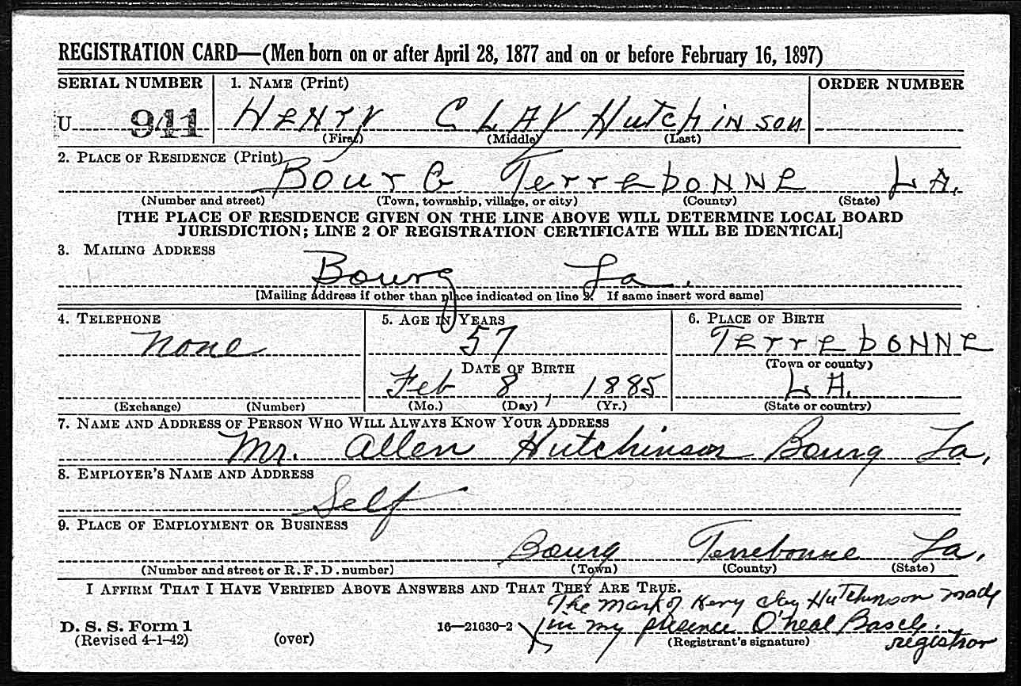 REGISTRATION CARD—(Men born on or after April 28, 1877 and on or before February 16, 1897)
SERIAL NUMBER 1. NAME (Print) ORDER NUMBER
U 941 HENry CLAy HutchinsoN
(First) (Middle) (Last)
2. PLACE OF RESIDENCE (Print)
BourG TerrebONNE LA.
(Number and street) (Town, township, village, or city) (County) (State)
[THE PLACE OF RESIDENCE GIVEN ON THE LINE ABOVE WILL DETERMINE LOCAL BOARD
JURISDICTION; LINE 2 OF REGISTRATION CERTIFICATE WILL BE IDENTICAL]
3. MAILING ADDRESS
Bourg La.
[Mailing address if other than place indicated on line 2. If same insert word same]
4. TELEPHONE 5. AGE IN YEARS 6. PLACE OF BIRTH
none 57 TerrebONNE
DATE OF BIRTH (Town or county)
Feb 8, 1885 LA.
(Exchange) (Number) (Mo.) (Day) (Yr.) (State or country)
7. NAME AND ADDRESS OF PERSON WHO WILL ALWAYS KNOW YOUR ADDRESS
Mr. Allen Hutchinson Bourg La,
8. EMPLOYER'S NAME AND ADDRESS
Self
9. PLACE OF EMPLOYMENT OR BUSINESS
Bourg Terrebonne La,
(Number and street or R.F.D. number) (Town) (County) (State)
I AFFIRM THAT I HAVE VERIFIED ABOVE ANSWERS AND THAT THEY ARE TRUE.
The mark of Henry Clay Hutchinson made
D. S. S. Form 1 16—21630-2 X in my presence O'neal
(Revised 4-1-42) (over) (Registrant's signature) registrar